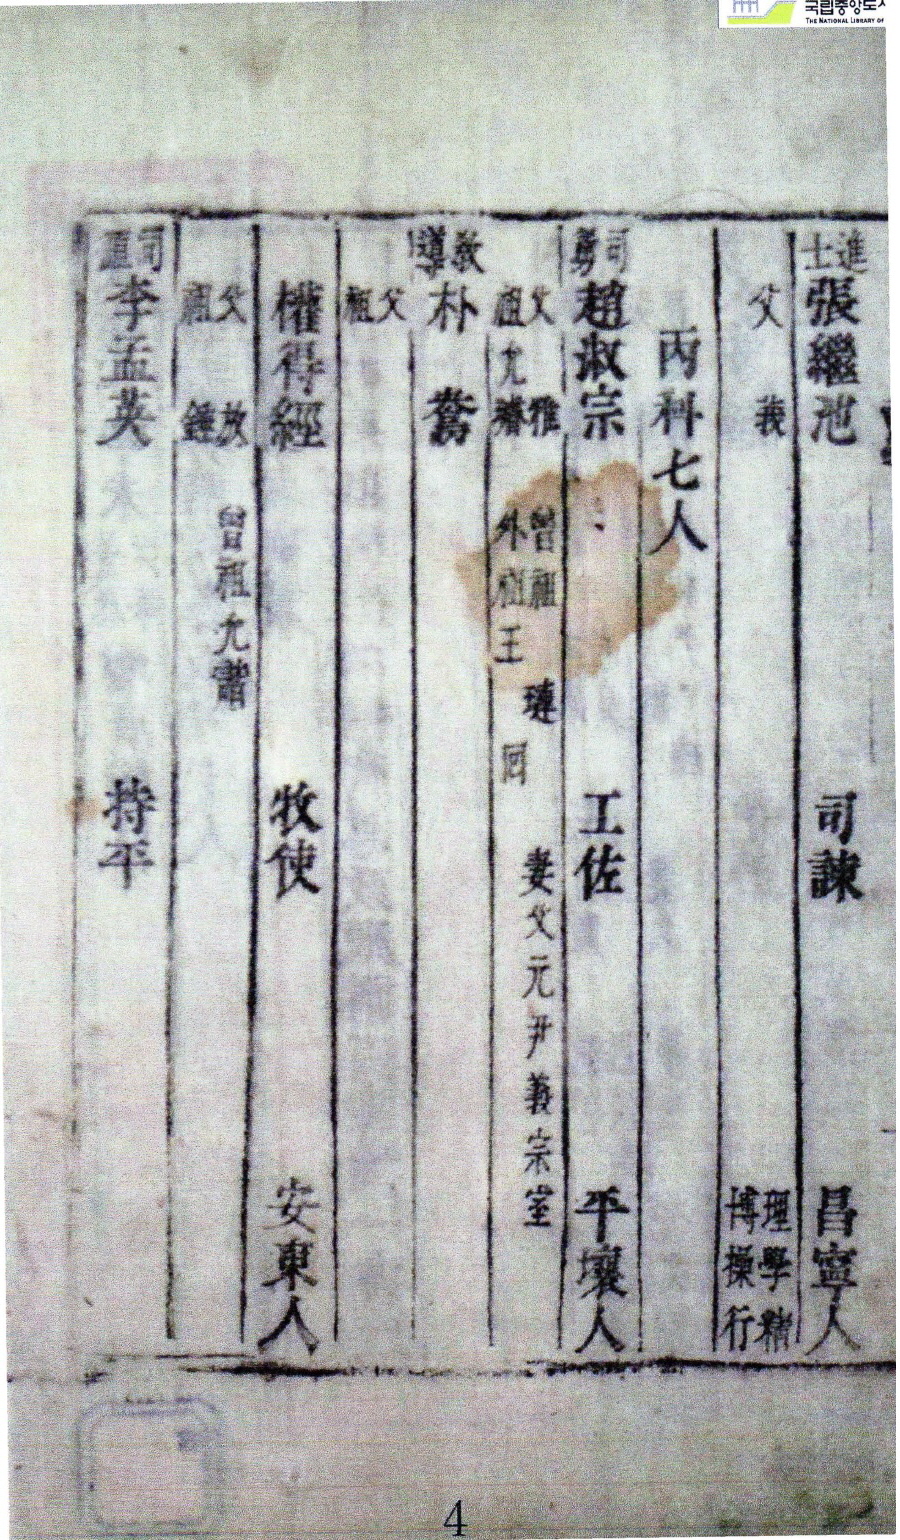 국립중앙도서
THE NATIONAL LIBRARY OF
進士 張繼池 司諫 昌寧人
父 莪 理學精博操行
丙科七人
司勇 趙淑宗 工佐 平壤人
父 雅 曾祖 璉 妻父元尹義宗室
祖 允㻩 外祖王 冋
教導 朴 鶱
父
祖
權得經 牧使 安東人
父 放 曾祖允
祖 錘
司直 李孟英 持平
4